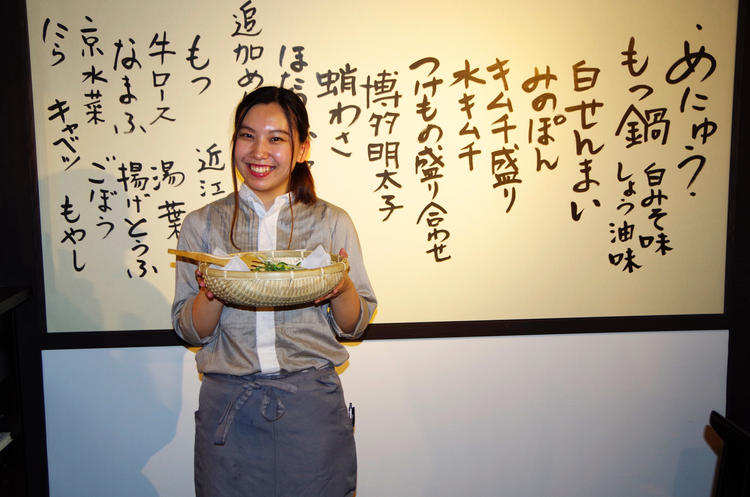 ・めにゅう・
もつ鍋 白みそ味
しょう油味
白せんまい
みのぽん
キムチ盛り
水キムチ
つけもの盛り合わせ
博多明太子
蛸わさ
ほたる
追加め
もつ 近江
牛ロース 湯葉
なまふ 揚げとうふ
京水菜 ごぼう
にら キャベツ もやし